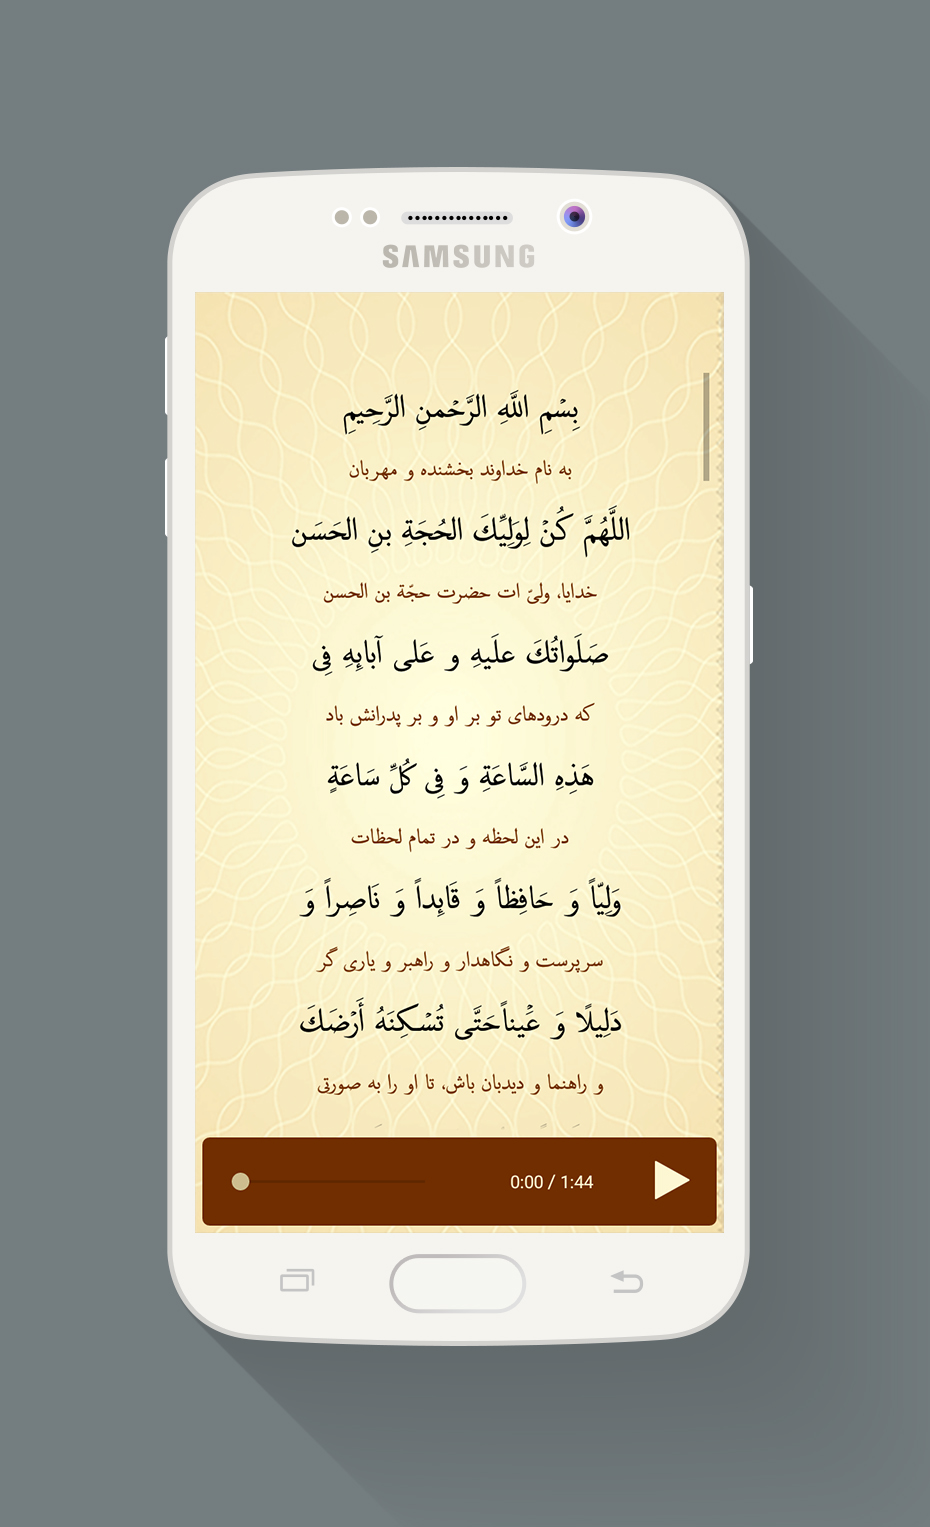 SAMSUNG
بِسْمِ اللَّهِ الرَّحْمنِ الرَّحِيمِ
به نام خداوند بخشنده و مهربان
اللَّهُمَّ كُنْ لِوَلِيِّكَ الحُجَةِ بنِ الحَسَن
خدایا، ولیّ ات حضرت حجّة بن الحسن
صَلَواتُكَ علَيهِ و عَلى آبائِهِ فِي
که درودهای تو بر او و بر پدرانش باد
هَذِهِ السَّاعَةِ وَ فِي كُلِّ سَاعَةٍ
در این لحظه و در تمام لحظات
وَلِيّاً وَ حَافِظاً وَ قَائِداً وَ نَاصِراً وَ
سرپرست و نگاهدار و راهبر و یاری گر
دَلِيلًا وَ عَيْناًحَتَّى تُسْكِنَهُ أَرْضَكَ
و راهنما و دیدبان باش، تا او را به صورتی
0:00 / 1:44